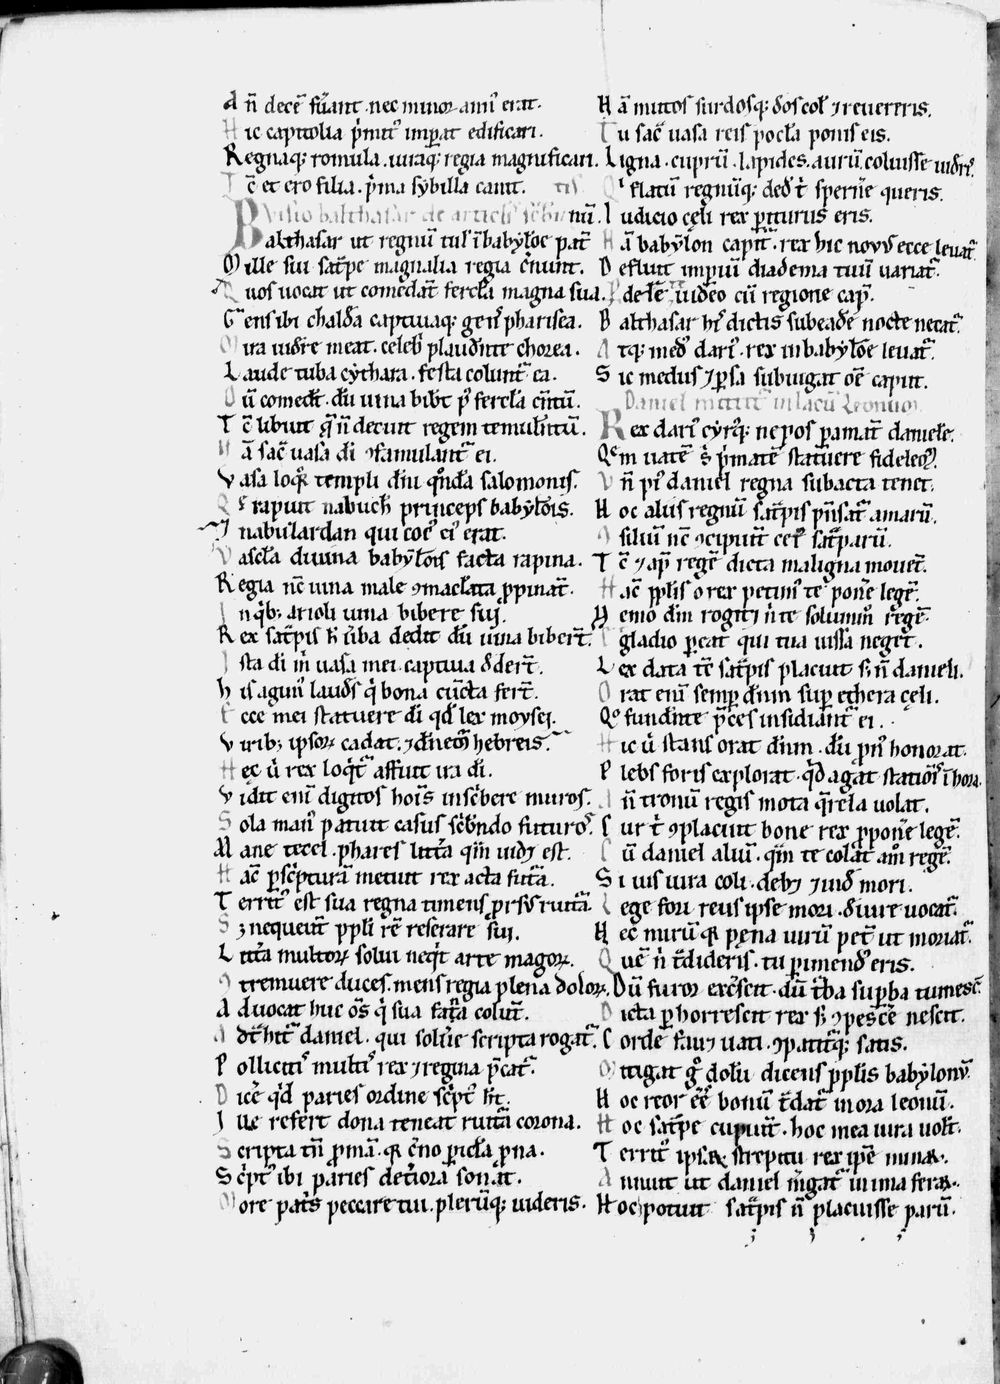 A n̄ decē fuant. nec minor amꝰ erat.
H ic capitolia p̄mitꝰ imꝑat edificari.
R egnaqꝫ romula. uiraqꝫ regia magnificari.
T c̄ et ero filia. p̄ma sybilla canit.
Uisio balthasar de articłis sc̄bentiū.
B althasar ut regnū tulͥt ī babyłoe pat̄
M ille sui sat̄pe magnalia regia c̄nunt.
Q uos uocat ut comēdat̄ fercła magna sua.
G ens ibi chald̄a captiuaqꝫ genꝰ pharisea.
M ira uidr̄e meat. celeb̄ plaud̄nte chorea.
L aude tuba cythara. festa colunt̄ ea.
D ū comed̄t. dū uina bibt̄ pꝰ fercła c̄ntū.
T c̄ libuit q̄ n̄ decuit regem temul̄ntū.
N ā sac̄ uasa di ꝯfamulant̄ ei.
V asa loqr̄ templi dn̄i qn̄da salomonis.
Q ͤ rapuit nabuch̄ princeps babyłois.
I nabulardan qui coc̄ ei erat.
V ascła diuina babyłois facta rapina.
R egia nc̄ uina male ꝯmacłata ꝓpinat̄.
I n qͥbꝫ arioli uina bibere sui.
R ex sat̄pis h̄ ūba dedit dū uina bibert̄.
I sta di m̄ uasa mei captiua ddert̄.
H is agunꝰ laud̄s qͥ bona cūcta fert̄.
E cce mei statuere di qd̄ lex moysei.
V iribꝫ ipsoꝝ cadat. ⁊ dn̄eoꝝ hebreis.
H ec ū rex loqt̄ affuit ira di.
V idit enī digitos hoīs insc̄bere muros.
S ola manꝰ patuit casus sc̄bndo futuros.
M ane tecel. phares litt̄a qīn uidꝫ est.
H ac̄ ꝑsc̄pturā metuit rex acta fut̄a.
T erritꝰ est sua regna timens ꝓrsꝰ ruit̄a.
S ꝫ nequeūt ꝓpłi rē reserare sui.
L itt̄a multoꝝ solui neqͥt arte magoꝝ.
ꝯ tremuere duces. mens regia plena doloꝝ.
A duocat huc oīs qͥ sua fat̄a colūt.
A dt̄hit̄ daniel. qui solūe scripta rogat̄.
P ollicitꝰ multꝰ rex ⁊ regina p̄cat̄.
D icē qd̄ paries ordine sc̄ptꝰ h̄t.
I lle refert dona teneat ruit̄a corona.
S cripta tn̄ ꝓmā. qꝛ c̄no ꝑicła ꝓna.
S c̄ptꝰ ibi paries det̄iora sonat.
M ore pat̄s peccare tui. plerūqꝫ uideris.
N ā mutos surdosqꝫ dos coł ⁊ reuereris.
T u sac̄ uasa reis pocła ponis eis.
L igna. cuprū. lapides. aurū coluisse uidr̄is.
Q ͥ flatū regnūqꝫ ded̄t sperūe queris.
I udicio cęli rex ꝑiturus eris.
N ā babyłon capit̄. rex hic nouꝰ ecce leuat̄.
D efluit impiū diadema tuū uariat̄.
P dełē uid̄eo cū regione cap̄.
B althasar hiꝰ dictis subeade nocte necat̄.
A tqꝫ medꝰ darꝰ. rex in babyłoe leuat̄.
S ic medus ⁊ ꝑsa subiugat oē caput.
Daniel mittitꝰ in lacū leonum.
R ex darꝰ cyrꝰqꝫ nepos ꝑamat̄ daniele.
Q ͤm uatē s̄ p̄matē statuere fideleqꝫ.
V n̄ pꝰ daniel regna subacta tenet.
H oc aliis regnū sat̄pis pn̄sat̄ amarū.
ꝯ siliū nc̄ ꝯcipiūt cet̄ sat̄parū.
T c̄ ⁊ ap̄ regē dicta maligna mouēt.
H ac̄ ꝓplis o rex petimꝰ te ponē legē.
N emo dm̄ rogitꝫ n̄ te solummꝰ regē.
E gladio ꝑeat qui tua iussa neget.
L ex data tc̄ sat̄pis placuit s̄ n̄ danieli.
O rat enī semꝑ dn̄m suꝑ ethera cęli.
Q ͦ fund̄nte p̄ces insidiant̄ ei.
H ic ū stans orat dn̄m. dū pn̄s honorat.
P lebs foris explorat. qd̄ agat statiois ī hora.
A n̄ tronū regis mota q̄rela uolat.
C ur t̄ ꝯplacuit bone rex ꝓponē legē.
C ū daniel aliū. qm̄ te colat amꝰ regē.
S i uis uira coli. debꝫ ⁊ iud̄ mori.
L ege fori reus ipse mori. diure uocat̄.
H ec mirū qꝛ pęna uirū pet̄ ut moriat̄.
Q uē n̄ t̄dideris. tu ꝑimendꝰ eris.
D ū furor exc̄scit. dū t̄ba suꝑba tumesc̄
D icta ꝑhorrescit rex s̄ ꝯpesc̄e nescit.
C orde fauꝫ uati. ꝯpatit̄qꝫ satis.
M itigat ḡ dolū dicens ꝓplis babylonꝰ.
H oc reor ēē bonū t̄dat̄ in ora leonū.
H oc sat̄pe cupiūt. hoc mea uira uolt̄.
T erritꝰ ipsoꝝ strepitu rex ipē minaꝝ.
A nnuit ut daniel mḡat̄ in ima feraꝝ.
H oc potuit sat̄pis n̄ placuisse parū.